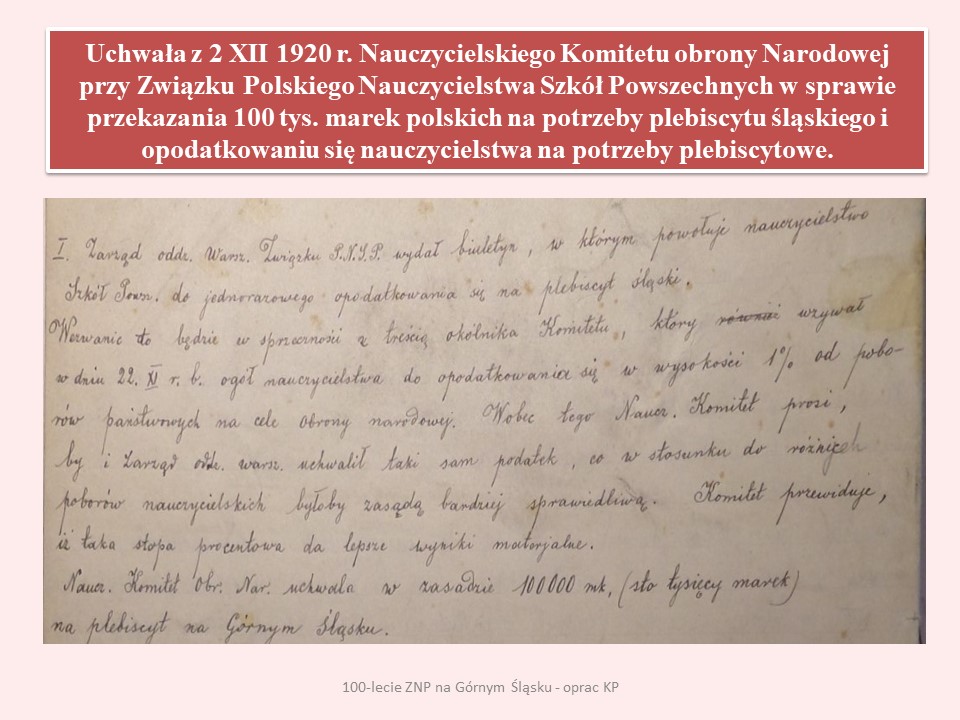 Uchwała z 2 XII 1920 r. Nauczycielskiego Komitetu obrony Narodowej
przy Związku Polskiego Nauczycielstwa Szkół Powszechnych w sprawie
przekazania 100 tys. marek polskich na potrzeby plebiscytu śląskiego i
opodatkowaniu się nauczycielstwa na potrzeby plebiscytowe.
I. Zarząd oddz. Warsz. Związku P.N.S.P. wydał biuletyn, w którym powołuje nauczycielstwo
Szkół Pown. do jednorazowego opodatkowania się na plebiscyt śląski.
Wezwanie to będzie w sprzeczności z treścią okólnika Komitetu, który również wzywał
w dniu 22. XI r. b. ogół nauczycielstwa do opodatkowania się w wysokości 1% od pobo-
rów państwowych na cele obrony narodowej. Wobec tego Naucz. Komitet prosi,
by i Zarząd oddz. warsz. uchwalił taki sam podatek, co w stosunku do różnych
poborów nauczycielskich byłoby zasadą bardziej sprawiedliwą. Komitet przewiduje,
iż taka stopa procentowa da lepsze wyniki materjalne.
Naucz. Komitet Obr. Nar. uchwala w zasadzie 100000 mk, (sto tysięcy marek)
na plebiscyt na Górnym Śląsku.
100-lecie ZNP na Górnym Śląsku - oprac KP